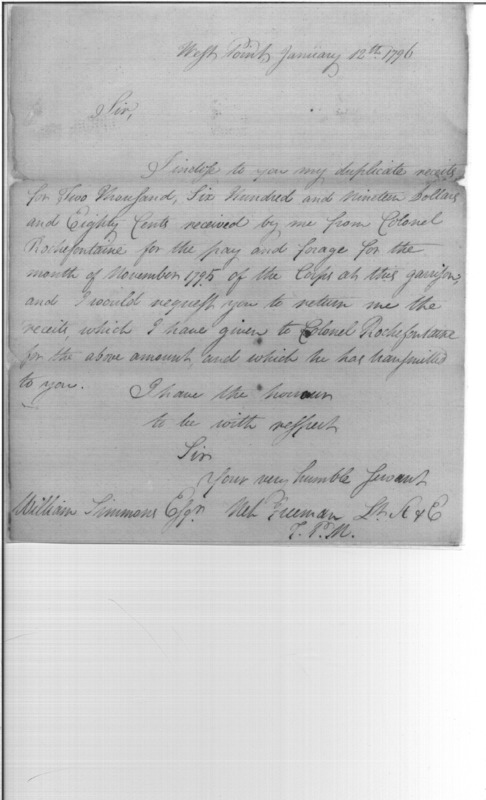 West Point January 12th. 1796
Sir,
I inclose to you my duplicate receits
for Two Thousand, Six Hundred and Nineteen Dollars
and Eighty Cents received by me from Colonel
Rochefontaine for the pay and forage for the
month of November 1795 of the Corps at this garrison,
and I would request you to return me the
receits, which I have given to Colonel Rochefontaine
for the above amount, and which he has transmitted
to you.
I have the honour
to be with respect
Sir
Your very humble Servant
William Simmons Esqr. Neh Freeman Lt. A & E
T. P. M.